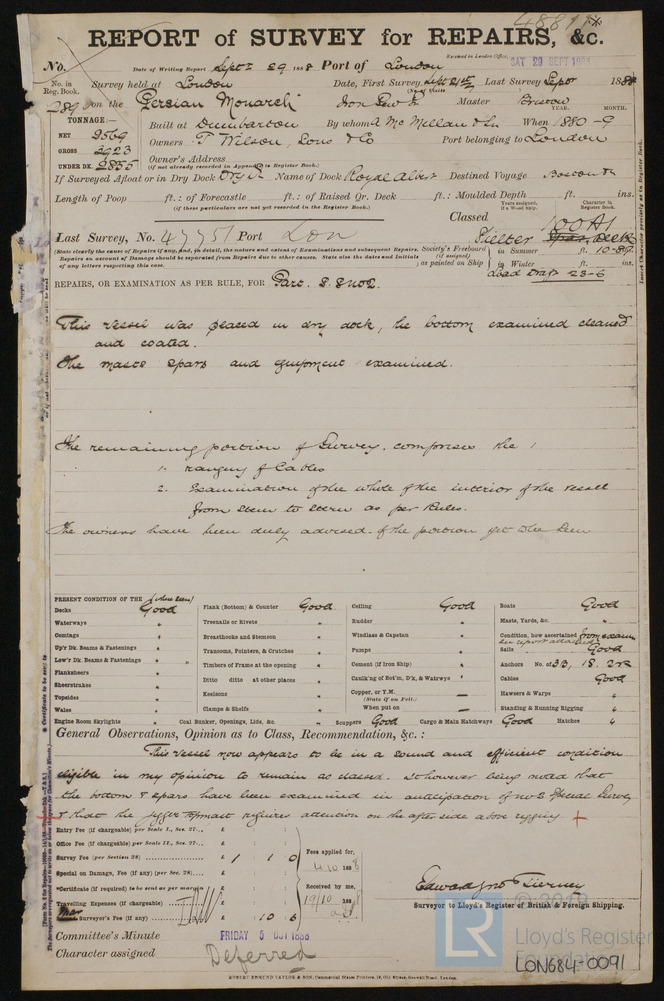 48811
REPORT of SURVEY for REPAIRS, &c.
Received in London Office, SAT 29 SEPT 1888
No. Date of Writing Report Septr 29 1888 Port of London
No. in Reg. Book. Survey held at London Date, First Survey, Sept 21st Last Survey Sepr 1888
289 on the Persian Monarch Iron Master Bristow
YEAR. MONTH.
TONNAGE:—
NET 2569
GROSS 3923
UNDER DK. 2855
Built at Dumbarton By whom A McMillan & Sn When 1880 - 9
Owners T Wilson, Sons & Co Port belonging to London
Owner's Address
(if not already recorded in Appendix to Register Book.)
If Surveyed Afloat or in Dry Dock Dry Name of Dock Royal Albert Destined Voyage Boston
Length of Poop ft.: of Forecastle ft.: of Raised Qr. Deck ft.: Moulded Depth ft. ins.
(if these particulars are not yet recorded in the Register Book.)
Years assigned, if a Wood Ship. Character in Register Book.
Classed 100A1
Last Survey, No. 47751 Port Lon
Spar Deck
(State clearly the cause of Repairs if any, and, in detail, the nature and extent of Examinations and subsequent Repairs.
Repairs on account of Damage should be separated from Repairs due to other causes. State also the dates and Initials
of any letters respecting this case.
Society's Freeboard (if assigned) as painted on Ship
in Summer ft. ins.
in Winter ft. ins.
Load Draft 23-6
REPAIRS, OR EXAMINATION AS PER RULE, FOR Part. S. S No 2.
This vessel was placed in dry dock, the bottom examined cleaned
and coated.
The masts spars and equipment examined.
The remaining portion of Survey. comprises the
1. ranging of Cables
2. Examination of the whole of the interior of the vessel
from stem to stern as per Rules.
The owners have been duly advised of the portion yet to be seen
PRESENT CONDITION OF THE (where seen)
Decks Good
Waterways "
Comings "
Up'r Dk. Beams & Fastenings "
Low'r Dk. Beams & Fastenings " "
Planksheers "
Sheerstrakes "
Topsides "
Wales "
Engine Room Skylights "
Plank (Bottom) & Counter Good
Treenails or Rivets "
Breasthooks and Stemson "
Transoms, Pointers, & Crutches "
Timbers of Frame at the opening "
Ditto ditto at other places "
Keelsons "
Clamps & Shelfs "
Coal Bunker, Openings, Lids, &c. "
Ceiling Good
Rudder "
Windlass & Capstan "
Pumps "
Cement (if Iron Ship) "
Caulk'ng of Bot'm, D'k, & Watrw'ys "
Copper, or Y.M. —
(State if on Felt.)
When put on —
Scuppers Good Cargo & Main Hatchways Good Hatches "
Boats Good
Masts, Yards, &c. "
Condition, how ascertained from exam
Sails Good
Anchors No. of 3B, 1S. 2K
Cables Good
Hawsers & Warps "
Standing & Running Rigging "
General Observations, Opinion as to Class, Recommendation, &c.:
This vessel now appears to be in a sound and efficient condition
eligible in my opinion to remain as classed. It however being noted that
the bottom & spars have been examined in anticipation of No 2 Special Survey
& that the jigger topmast requires attention on the after side above rigging
Entry Fee (if chargeable) per Scale I., Sec. 27...£ : :
Office Fee (if chargeable) per Scale II., Sec. 27...£ : :
Survey Fee (per Section 28) £ 1 : 1 : 0
Special on Damage, Fee (if any) (per Sec. 28) £ : :
*Certificate (if required) to be sent as per margin £ : :
Travelling Expenses (if chargeable) £ : :
Surveyor's Fee (if any) £ : 10 : 6
Fees applied for, 4/10 1888
Received by me, 19/10 1888
Edward Jno Tierney
Surveyor to Lloyd's Register of British & Foreign Shipping.
Committee's Minute FRIDAY 5 OCT 1888
Character assigned Deferred
ROBERT EDMUND TAYLOR & SON, Commercial Steam Printers, 19, Old Street, Goswell Road, London.
© 2019
LR
Lloyd's Register
Foundation
LON684-0091